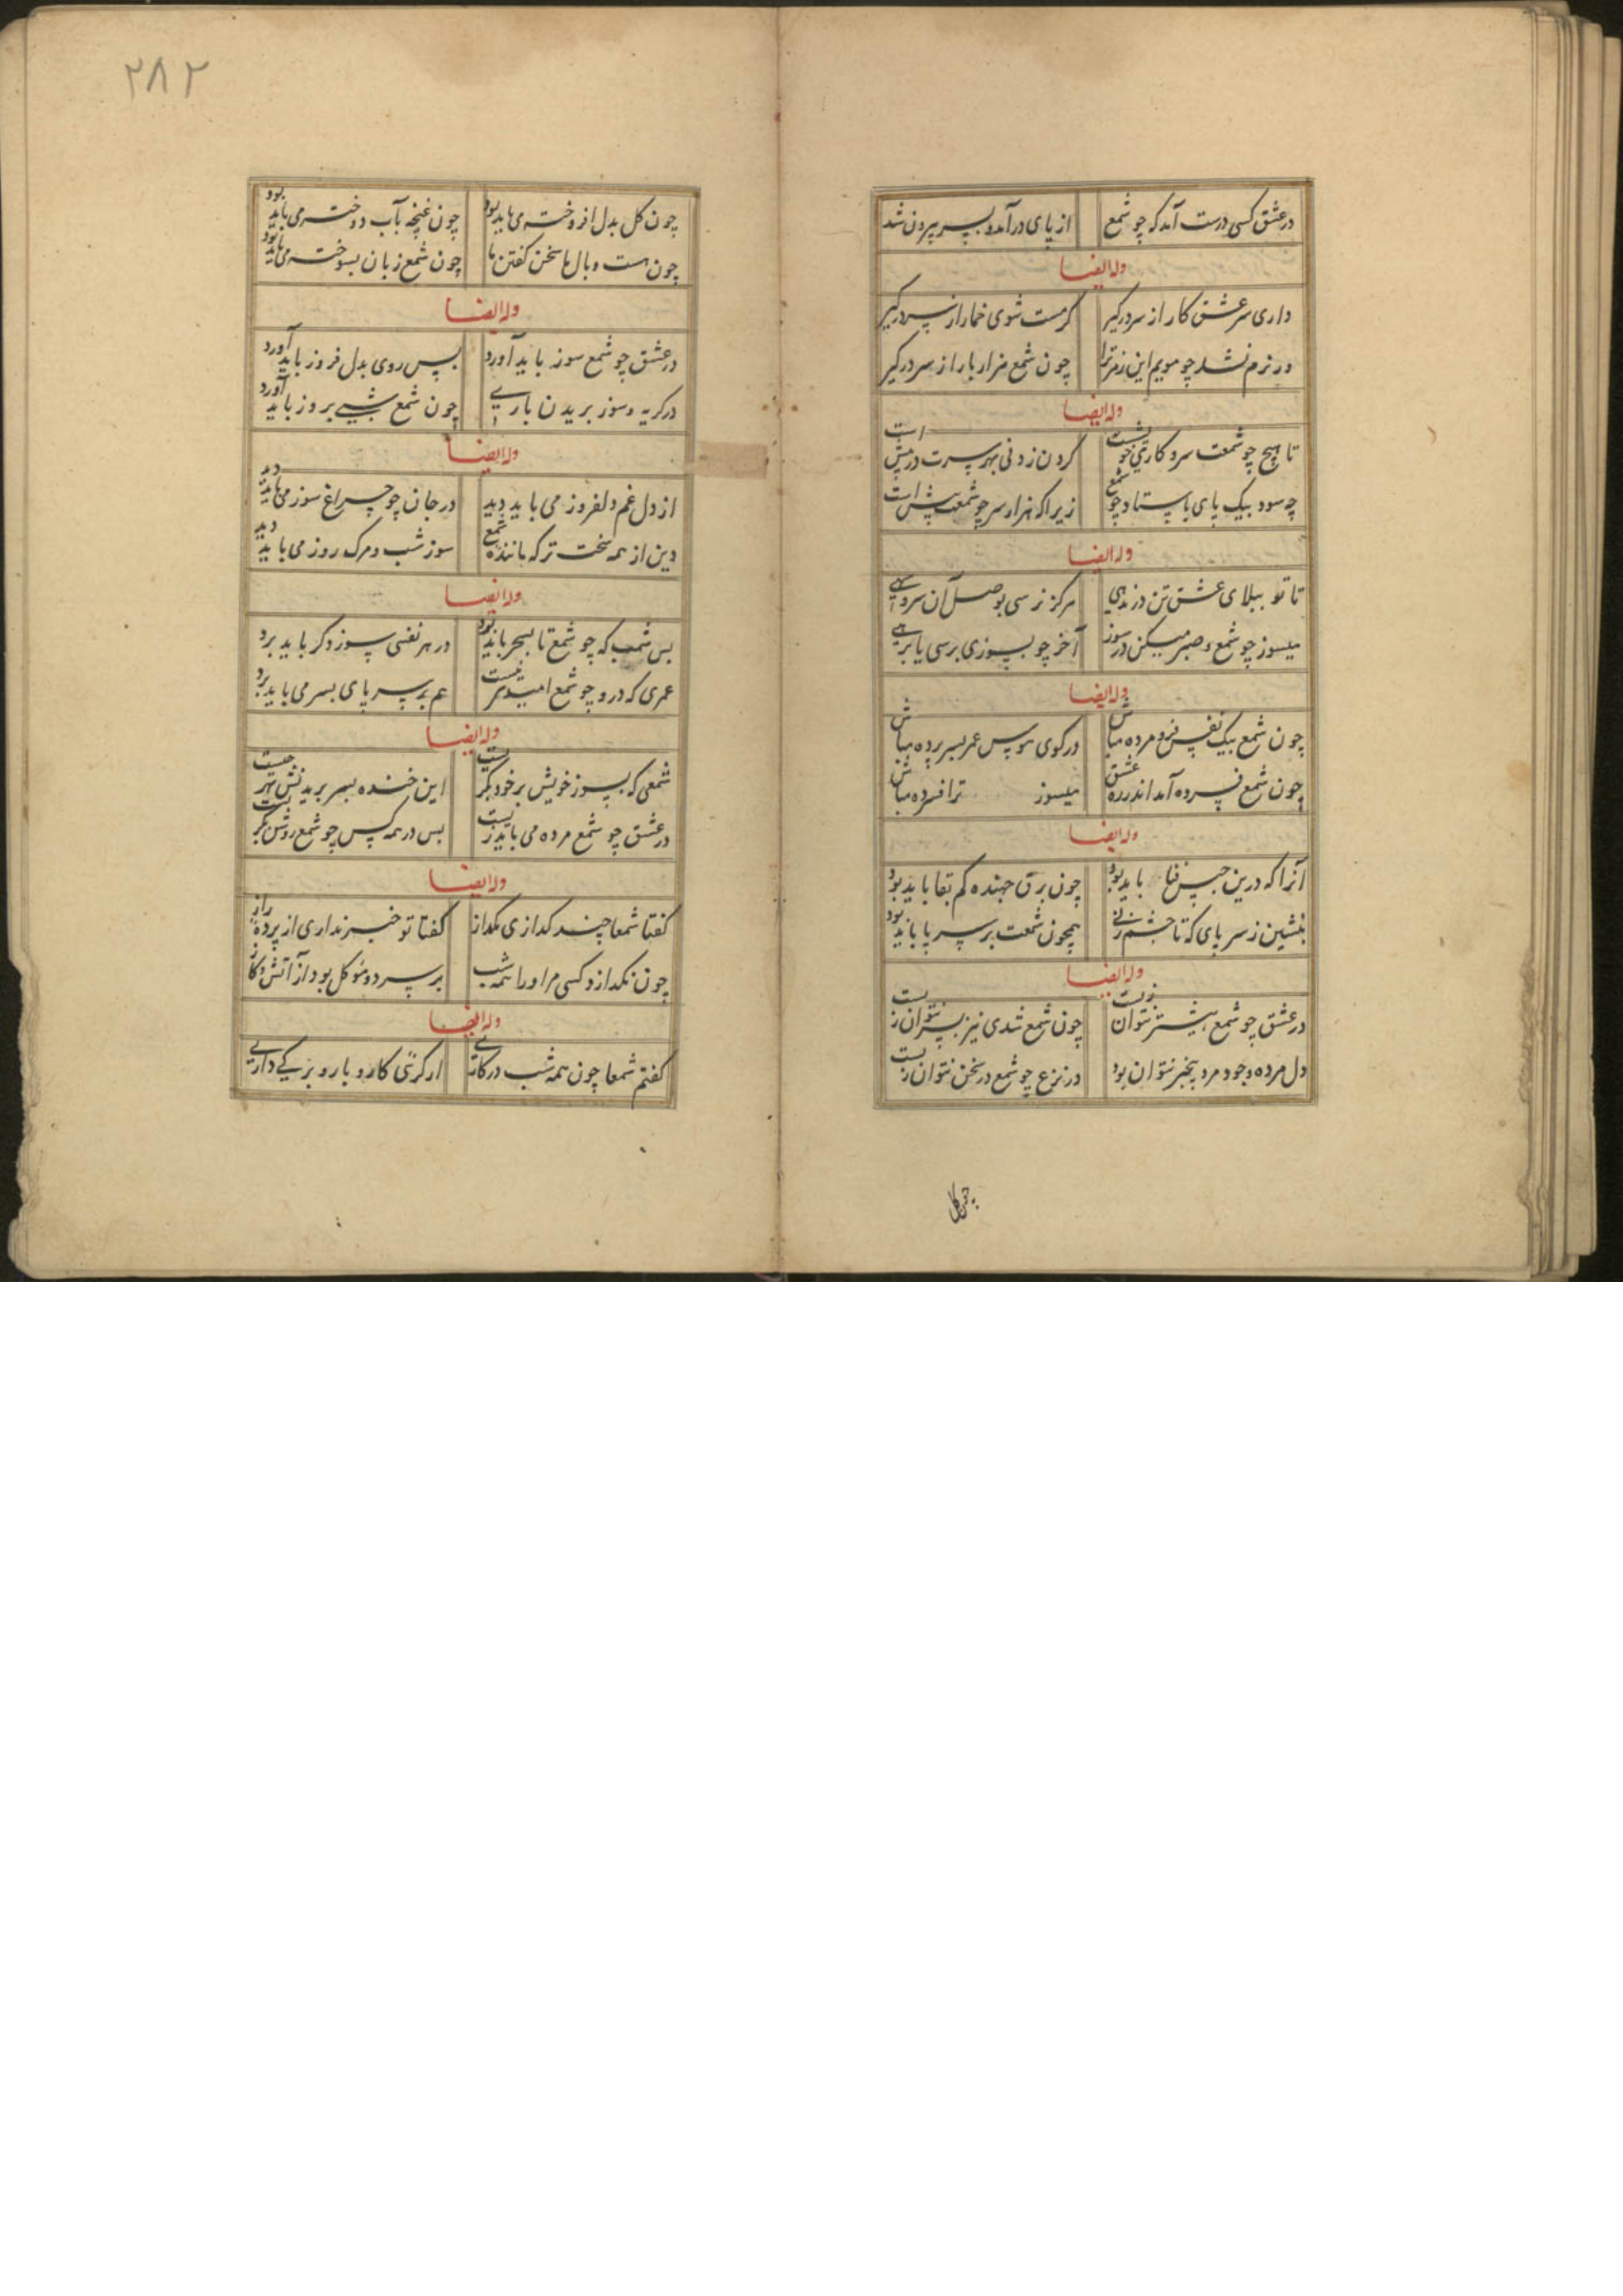 در عشق کسی درست آمد که چو شمع از پای درآمد و بسر بیرون شد
وله ایضا
داری سر عشق کار از سر درگیر گر مست شوی خمار از سر درگیر
ور نرم نشد چو مویم این رمز ترا چون شمع هزار بار از سر درگیر
وله ایضا
تا هیچ چو شمعت سر و کار خویشت است گردن زدنی بهر سرت در پیش
چه سود بیک پای باستاد چو شمع زیرا که هزار سر چو شمعت پیش است
وله ایضا
تا تو ببلای عشق تن در ندهی هرگز نرسی بوصل آن سرو سهی
میسوز چو شمع و صبر میکن در سوز آخر چو بسوزی برسی یا برهی
وله ایضا
چون شمع بیک نفس فرو مرده مباش در کوی هوس عمر بسر برده مباش
چون شمع فسرده آمد اندر ره عشق میسوز ترا فسرده مباش
وله ایضا
آنرا که درین حبس فنا باید بود چون برق جهنده کم بقا باید بود
بنشین ز سر پای که تا چشم زنی همچون شمعت بر سر پا باید بود
وله ایضا
در عشق چو شمع بیشتر نتوان زیست چون شمع شدی نیز بسر نتوان زیست
دل مرده وجود مرد بیخبر نتوان بود در نزع چو شمع در سخن نتوان زیست
چون گل
۲۸۲
چون گل بدل افروخته می باید بود چون غنچه بآب دوخته می باید بود
چون هست وبال ما سخن گفتن ما چون شمع زبان بسوخته می باید بود
وله ایضا
در عشق چو شمع سوز باید آورد پس روی بدل فروز باید آورد
در گریه و سوز بریدن باری چون شمع شبی بروز باید آورد
وله ایضا
از دل غم دلفروز می باید دید در جان چو چراغ سوز می باید دید
وین از همه سخت تر که ماننده شمع سوز شب و مرگ روز می باید دید
وله ایضا
بس شب که چو شمع تا بسحر باید بود در هر نفسی بسوز دگر باید برد
عمری که درو چو شمع امیدم نیست هم بر سر پای بسر می باید برد
وله ایضا
شمعی که بسوز خویش بر خود بگریست این خنده بسر بریدنش بهر چیست
در عشق چو شمع مرده می باید زیست پس در همه کس چو شمع روشن نگریست
وله ایضا
گفتا شمعا چند گدازی مگداز گفتا تو خبر نداری از پرده راز
چون نگدازد کسی مر او را همه شب بر سر دو موکل بود از آتش و گاز
وله ایضا
گفتم شمعا چون همه شب در کاری از گرمی کار و بار و بزیکی داری